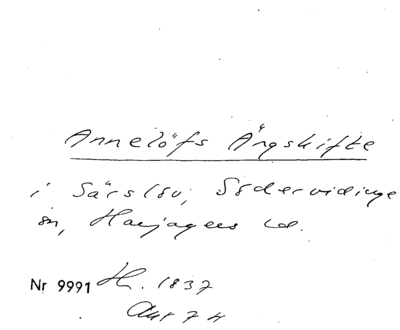 Annelöfs Ängskifte
i Särslöv, Södervidinge
sn, Harjagers hd.
Nr 9991 H. 1837
Akt 74